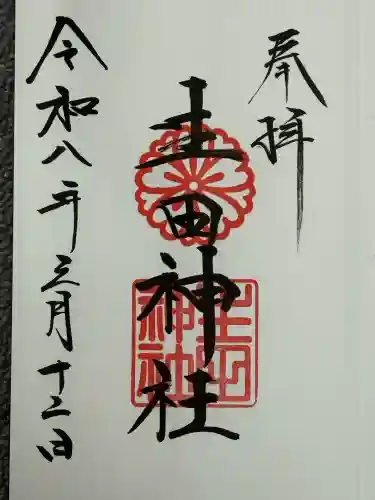 奉拝
生田神社
令和八年三月十二日
生田
神社